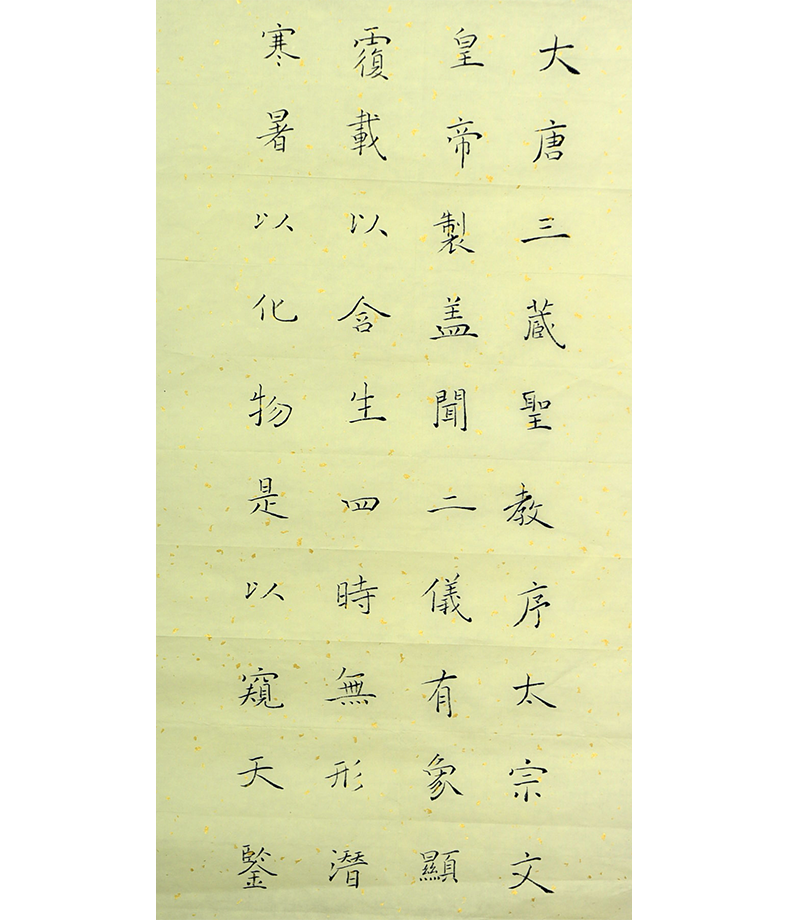 大唐三蔵聖教序太宗文
皇帝製盖聞二儀有象顯
覆載以含生四時無形潛
寒暑以化物是以窺天鑒